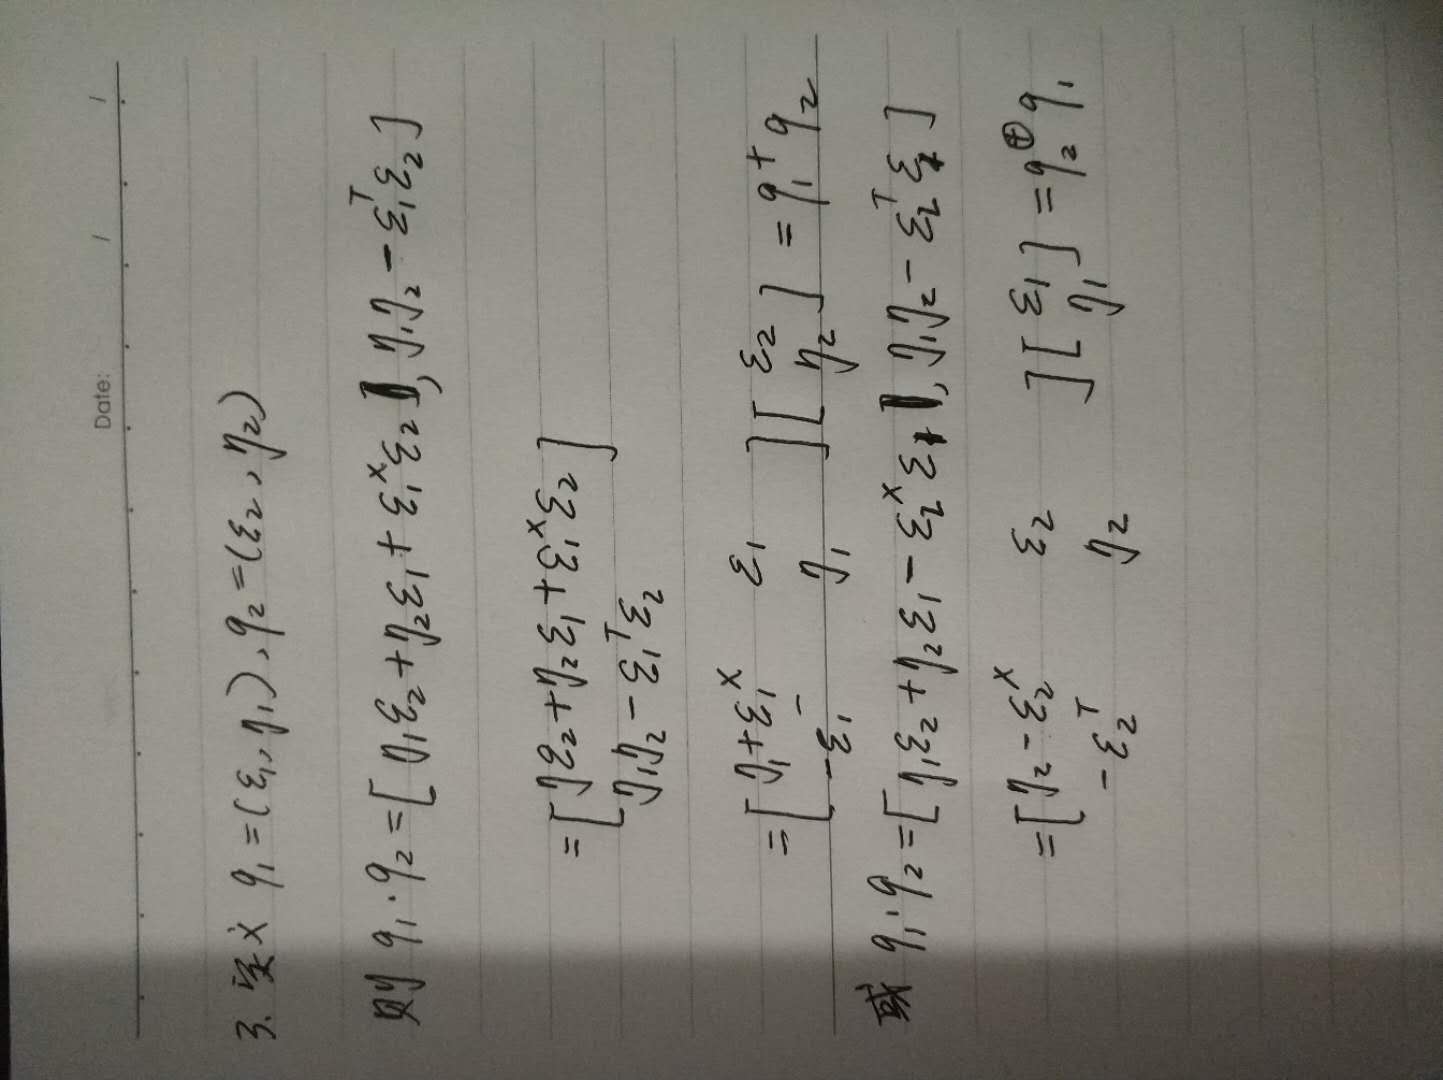 Date: / /
3. 定义 q₁=(ε₁, η₁), q₂=(ε₂, η₂)
则 q₁·q₂=[η₁ε₂+η₂ε₁+ε₁ˣε₂, η₁η₂-ε₁ᵀε₂]
=[ηε₂+η₂ε₁+ε₁ˣε₂
η₁η₂-ε₁ᵀε₂]
=[η₁+ε₁ˣ ε₁][ε₂
-ε₁⁻ η₁][η₂]=q₁⁺q₂
或 q₁·q₂=[η₁ε₂+η₂ε₁-ε₂ˣε₁, η₁η₂-ε₂ᵀε₁]
=[η₂-ε₂ˣ ε₂][ε₁
-ε₂ᵀ η₂][η₁]=q₂^⊕q₁